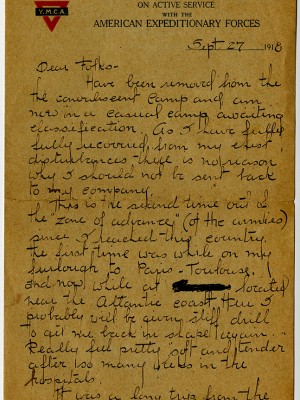 Y.M.C.A.
ON ACTIVE SERVICE
WITH THE
AMERICAN EXPEDITIONARY FORCES
Sept 27 1918
Dear Folks-
Have been removed from the
the convalescent camp and am
now in a casual camp awaiting
classification. As I have fully
fully recovered from my
disturbances there is no reason
why I should not be sent back
to my company.
This is the second time out of
the "zone of advance" (of the armies)
since I reached this country.
the first time was while on my
furlough to Paris - Toulouse.
and now while at located
near the Atlantic coast. Here I
probably will be given stiff drill
to get me back in shape again.
Really feel pretty soft and tender
after too many weeks in the
hospitals.
It was a long trip from the